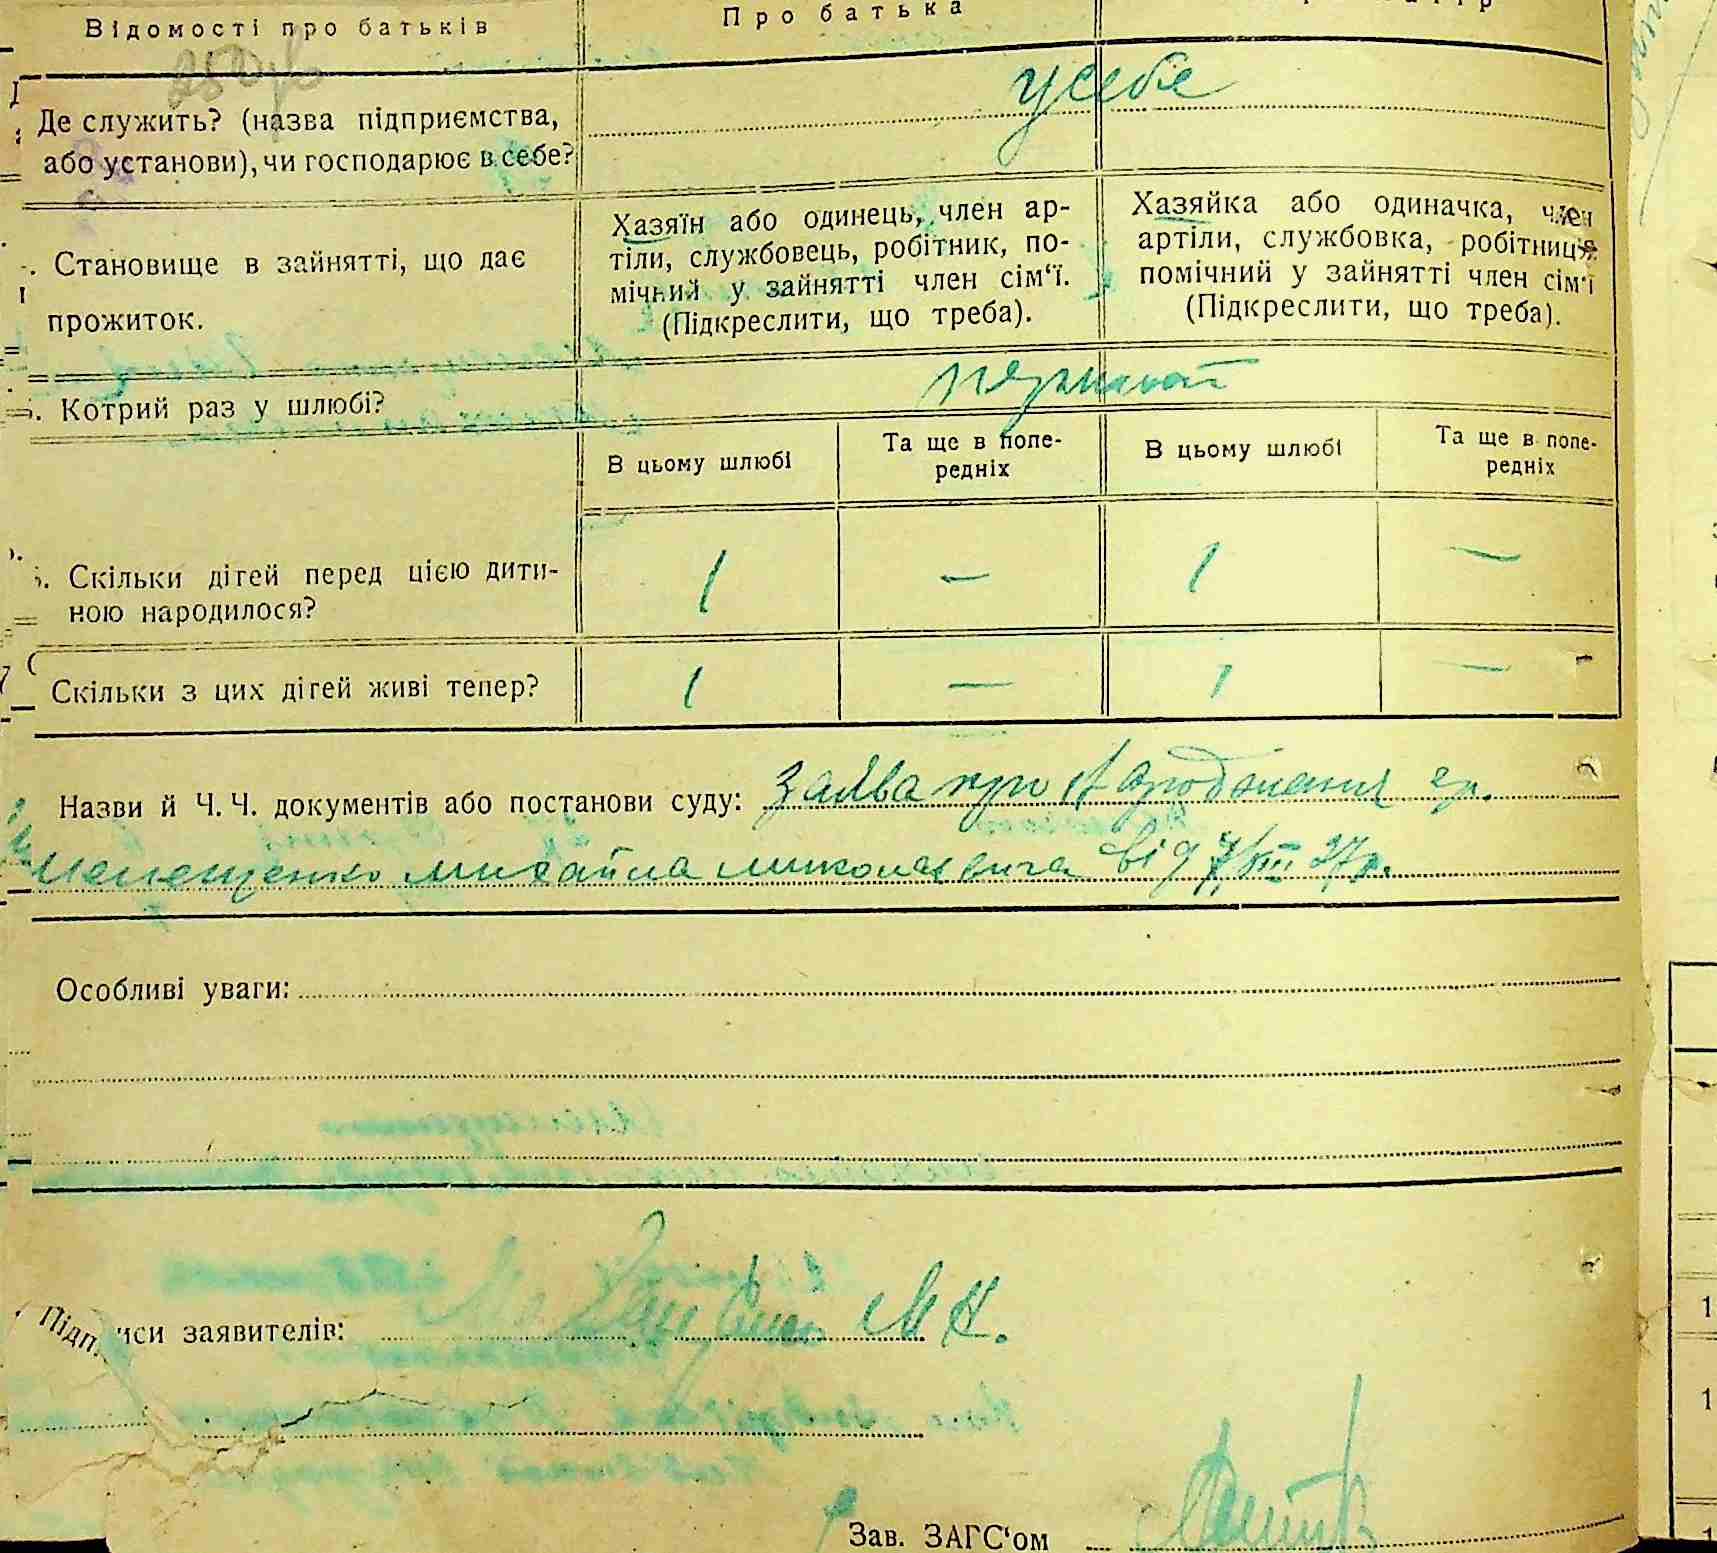 Відомості про батьків
Про батька
Де служить? (назва підприємства,
або установи), чи господарює в себе?
у себе
Становище в зайнятті, що дає
прожиток.
Хазяїн або одинець, член ар-
тіли, службовець, робітник, по-
мічний у зайнятті член сім‘ї.
(Підкреслити, що треба).
Хазяйка або одиначка, член
артіли, службовка, робітниця
помічний у зайнятті член сім‘ї
(Підкреслити, що треба).
Котрий раз у шлюбі?
В цьому шлюбі
Та ще в попе-
редніх
В цьому шлюбі
Та ще в попе-
редніх
Скільки дітей перед цією дити-
ною народилося?
1 — 1 —
Скільки з цих дітей живі тепер?
1 — 1 —
Назви й Ч. Ч. документів або постанови суду: Заява про народження гр.
михайла миколаевича від 7/VIII 27р.
Особливі уваги:
Підписи заявителів: М Н.
Зав. ЗАГС‘ом